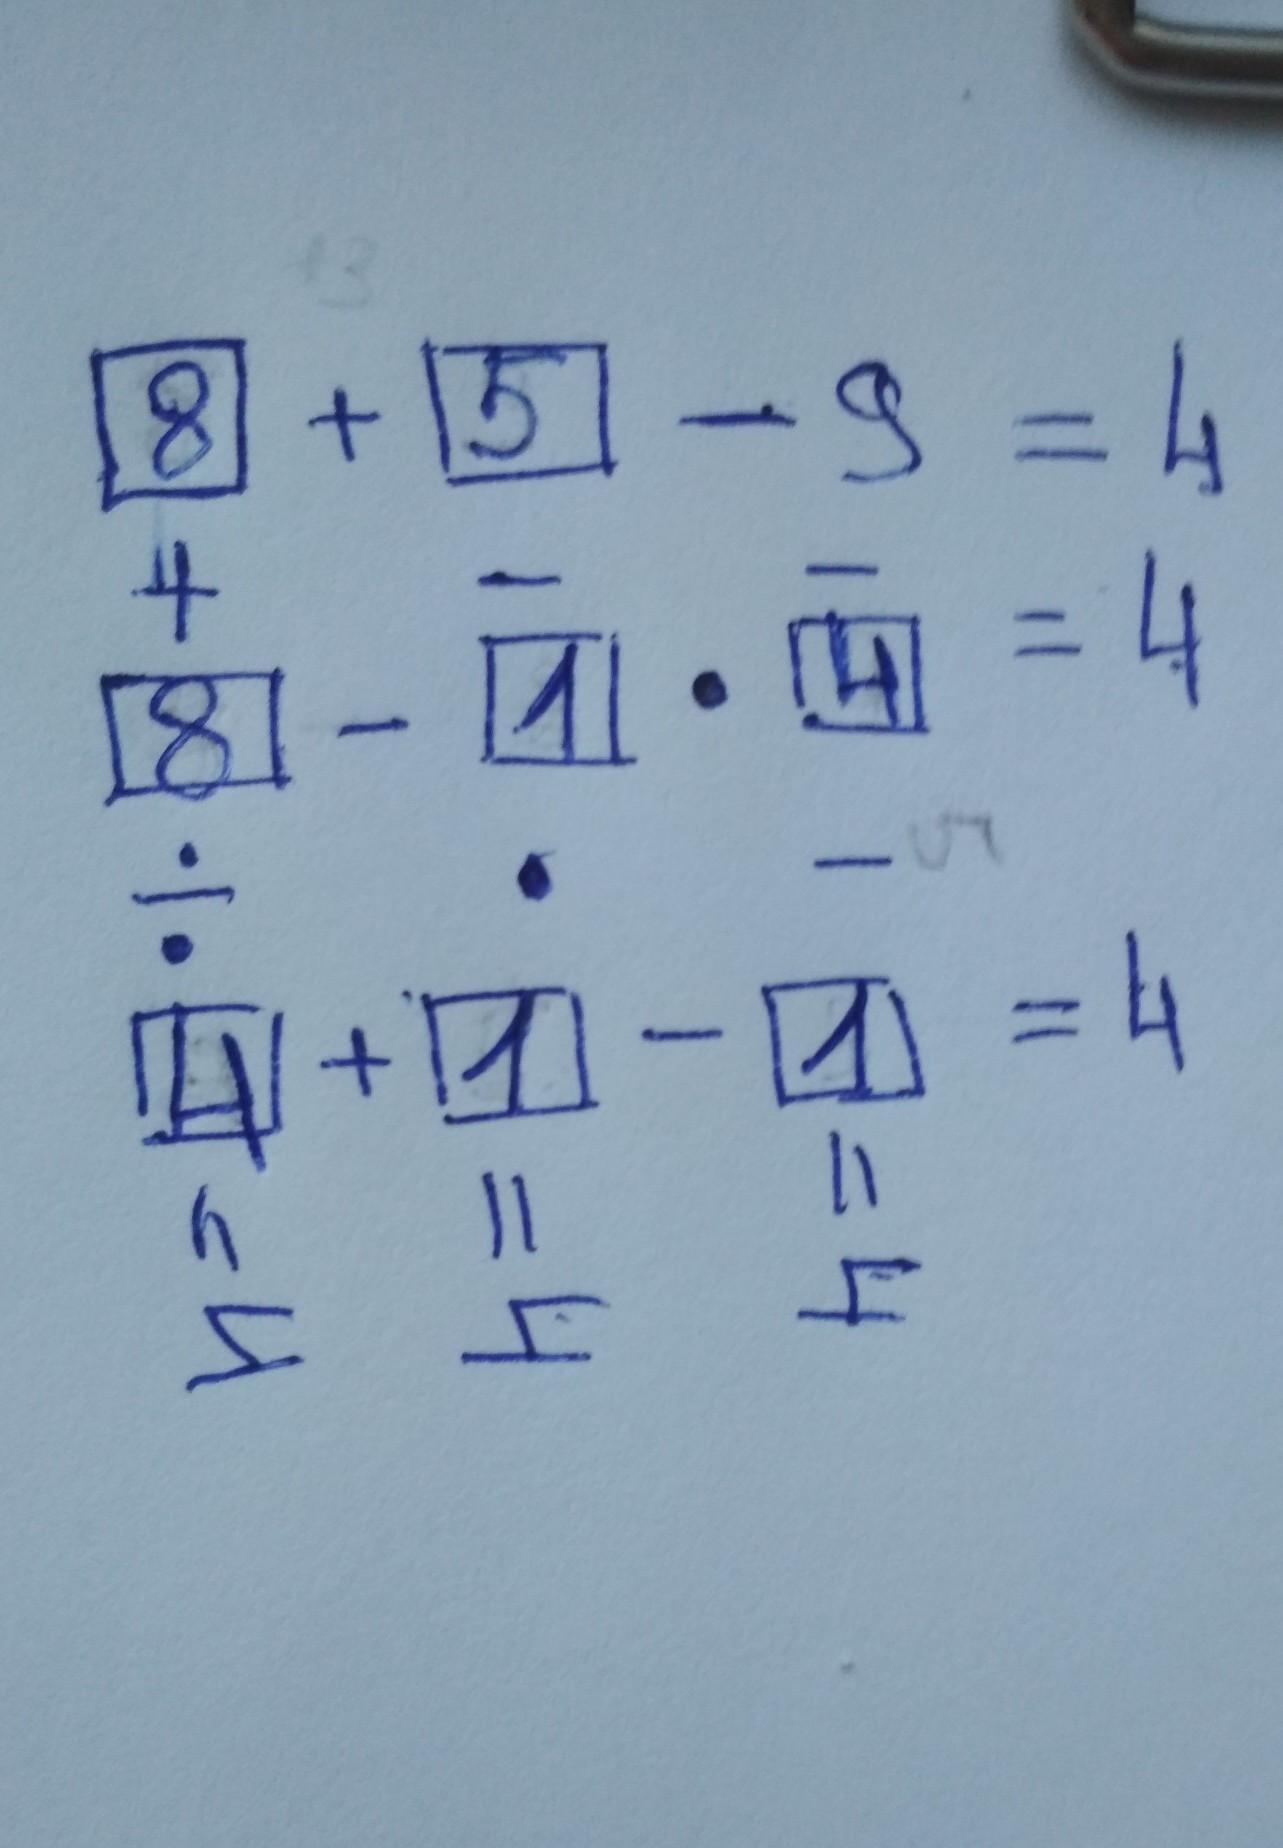 13
8 + 5 - 9 = 4
+ - -
8 - 1 • 4 = 4
÷ • -
4 + 1 - 1 = 4
= = =
4 4 4